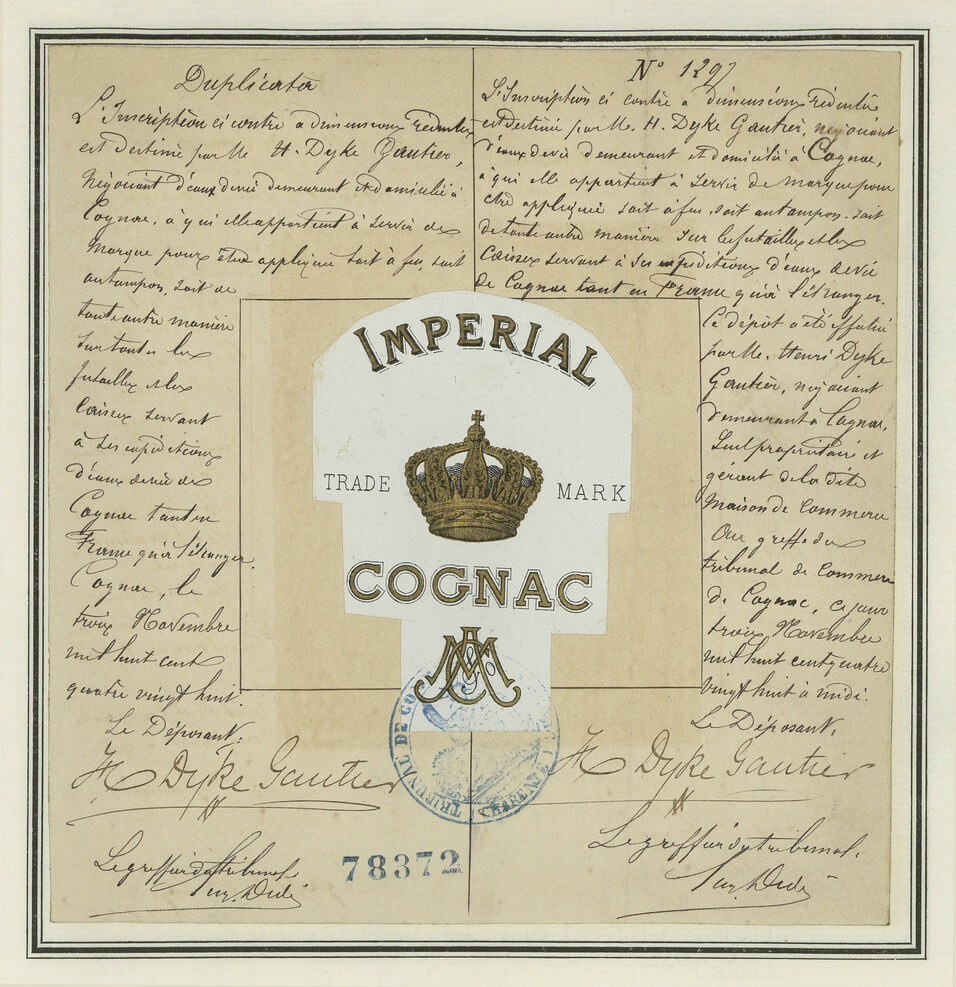 Duplicata
L'Inscription ci contre a dimensions réduites
est destinée par Mr H. Dyke Gautier,
Négociant d'eaux de vie demeurant et domicilié à
Cognac, à qui elle appartient à servir de
Marque pour être appliquée soit à feu, soit
au tampon, soit de
toute autre manière
sur toutes les
futailles et les
Caisses servant
à ses expéditions
d'eaux de vie de
Cognac tant en
France qu'à l'étranger.
Cognac, le
trois Novembre
mil huit cent
quatre vingt huit.
Le Déposant:
H Dyke Gautier
Le greffier du tribunal
No 1297
L'Inscription ci contre a dimensions réduites
est destinée par Mr. H. Dyke Gautier, négociant
d'eaux de vie demeurant et domicilié à Cognac,
à qui elle appartient à servir de marque pour
être appliquée soit à feu, soit au tampon, soit
de toute autre manière sur les futailles et les
Caisses servant à ses expéditions d'eaux de vie
de Cognac tant en France qu'à l'étranger.
Ce dépôt a été effectué
par Mr. Henri Dyke
Gautier, négociant
demeurant à Cognac,
Seul propriétaire et
gérant de la dite
Maison de Commerce
Au greffe du
tribunal de Commerce
de Cognac, ce jour
trois Novembre
mil huit cent quatre
vingt huit à midi.
Le Déposant,
H Dyke Gautier
Le greffier du tribunal.
IMPERIAL
TRADE MARK
COGNAC
TRIBUNAL DE CO
78372